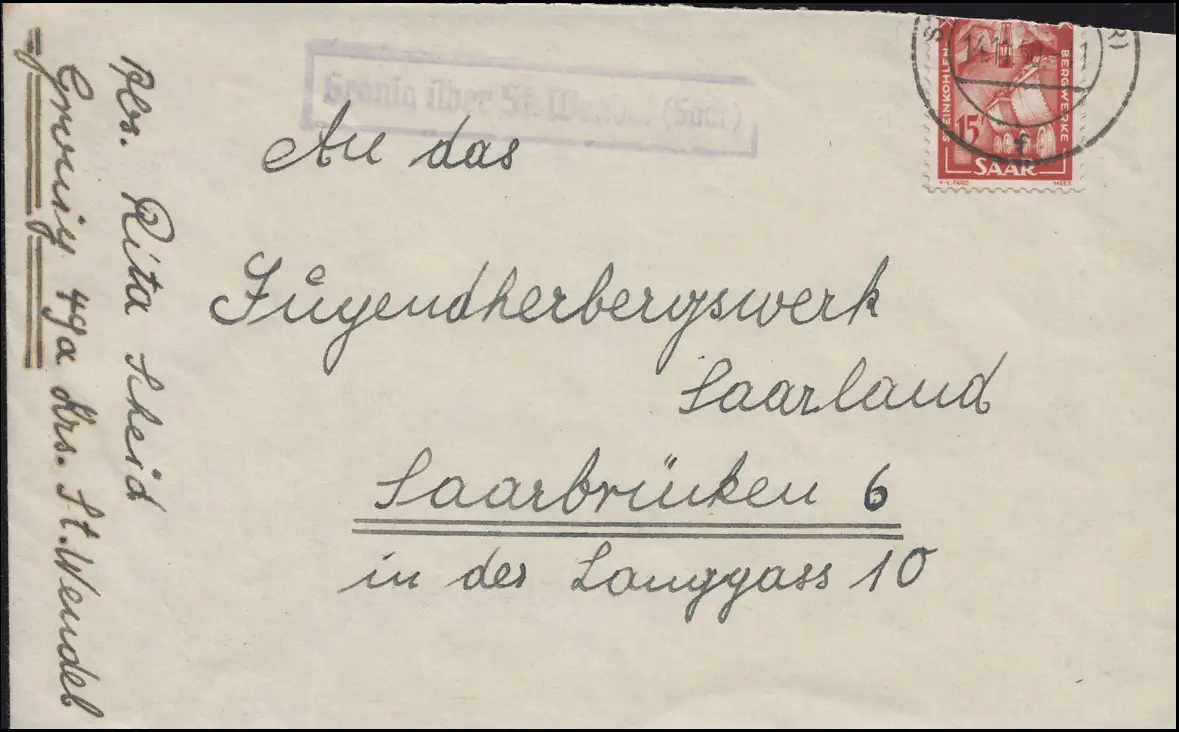 Gronig über St. Wendel (Saar)
14.11.50
STEINKOHLEN
BERGWERKE
15F
SAAR
MEES
An das
Jugendherbergswerk
Saarland
Saarbrücken 6
in der Langgass 10
Abs. Rita Scheid
Gronig 49a Krs. St. Wendel